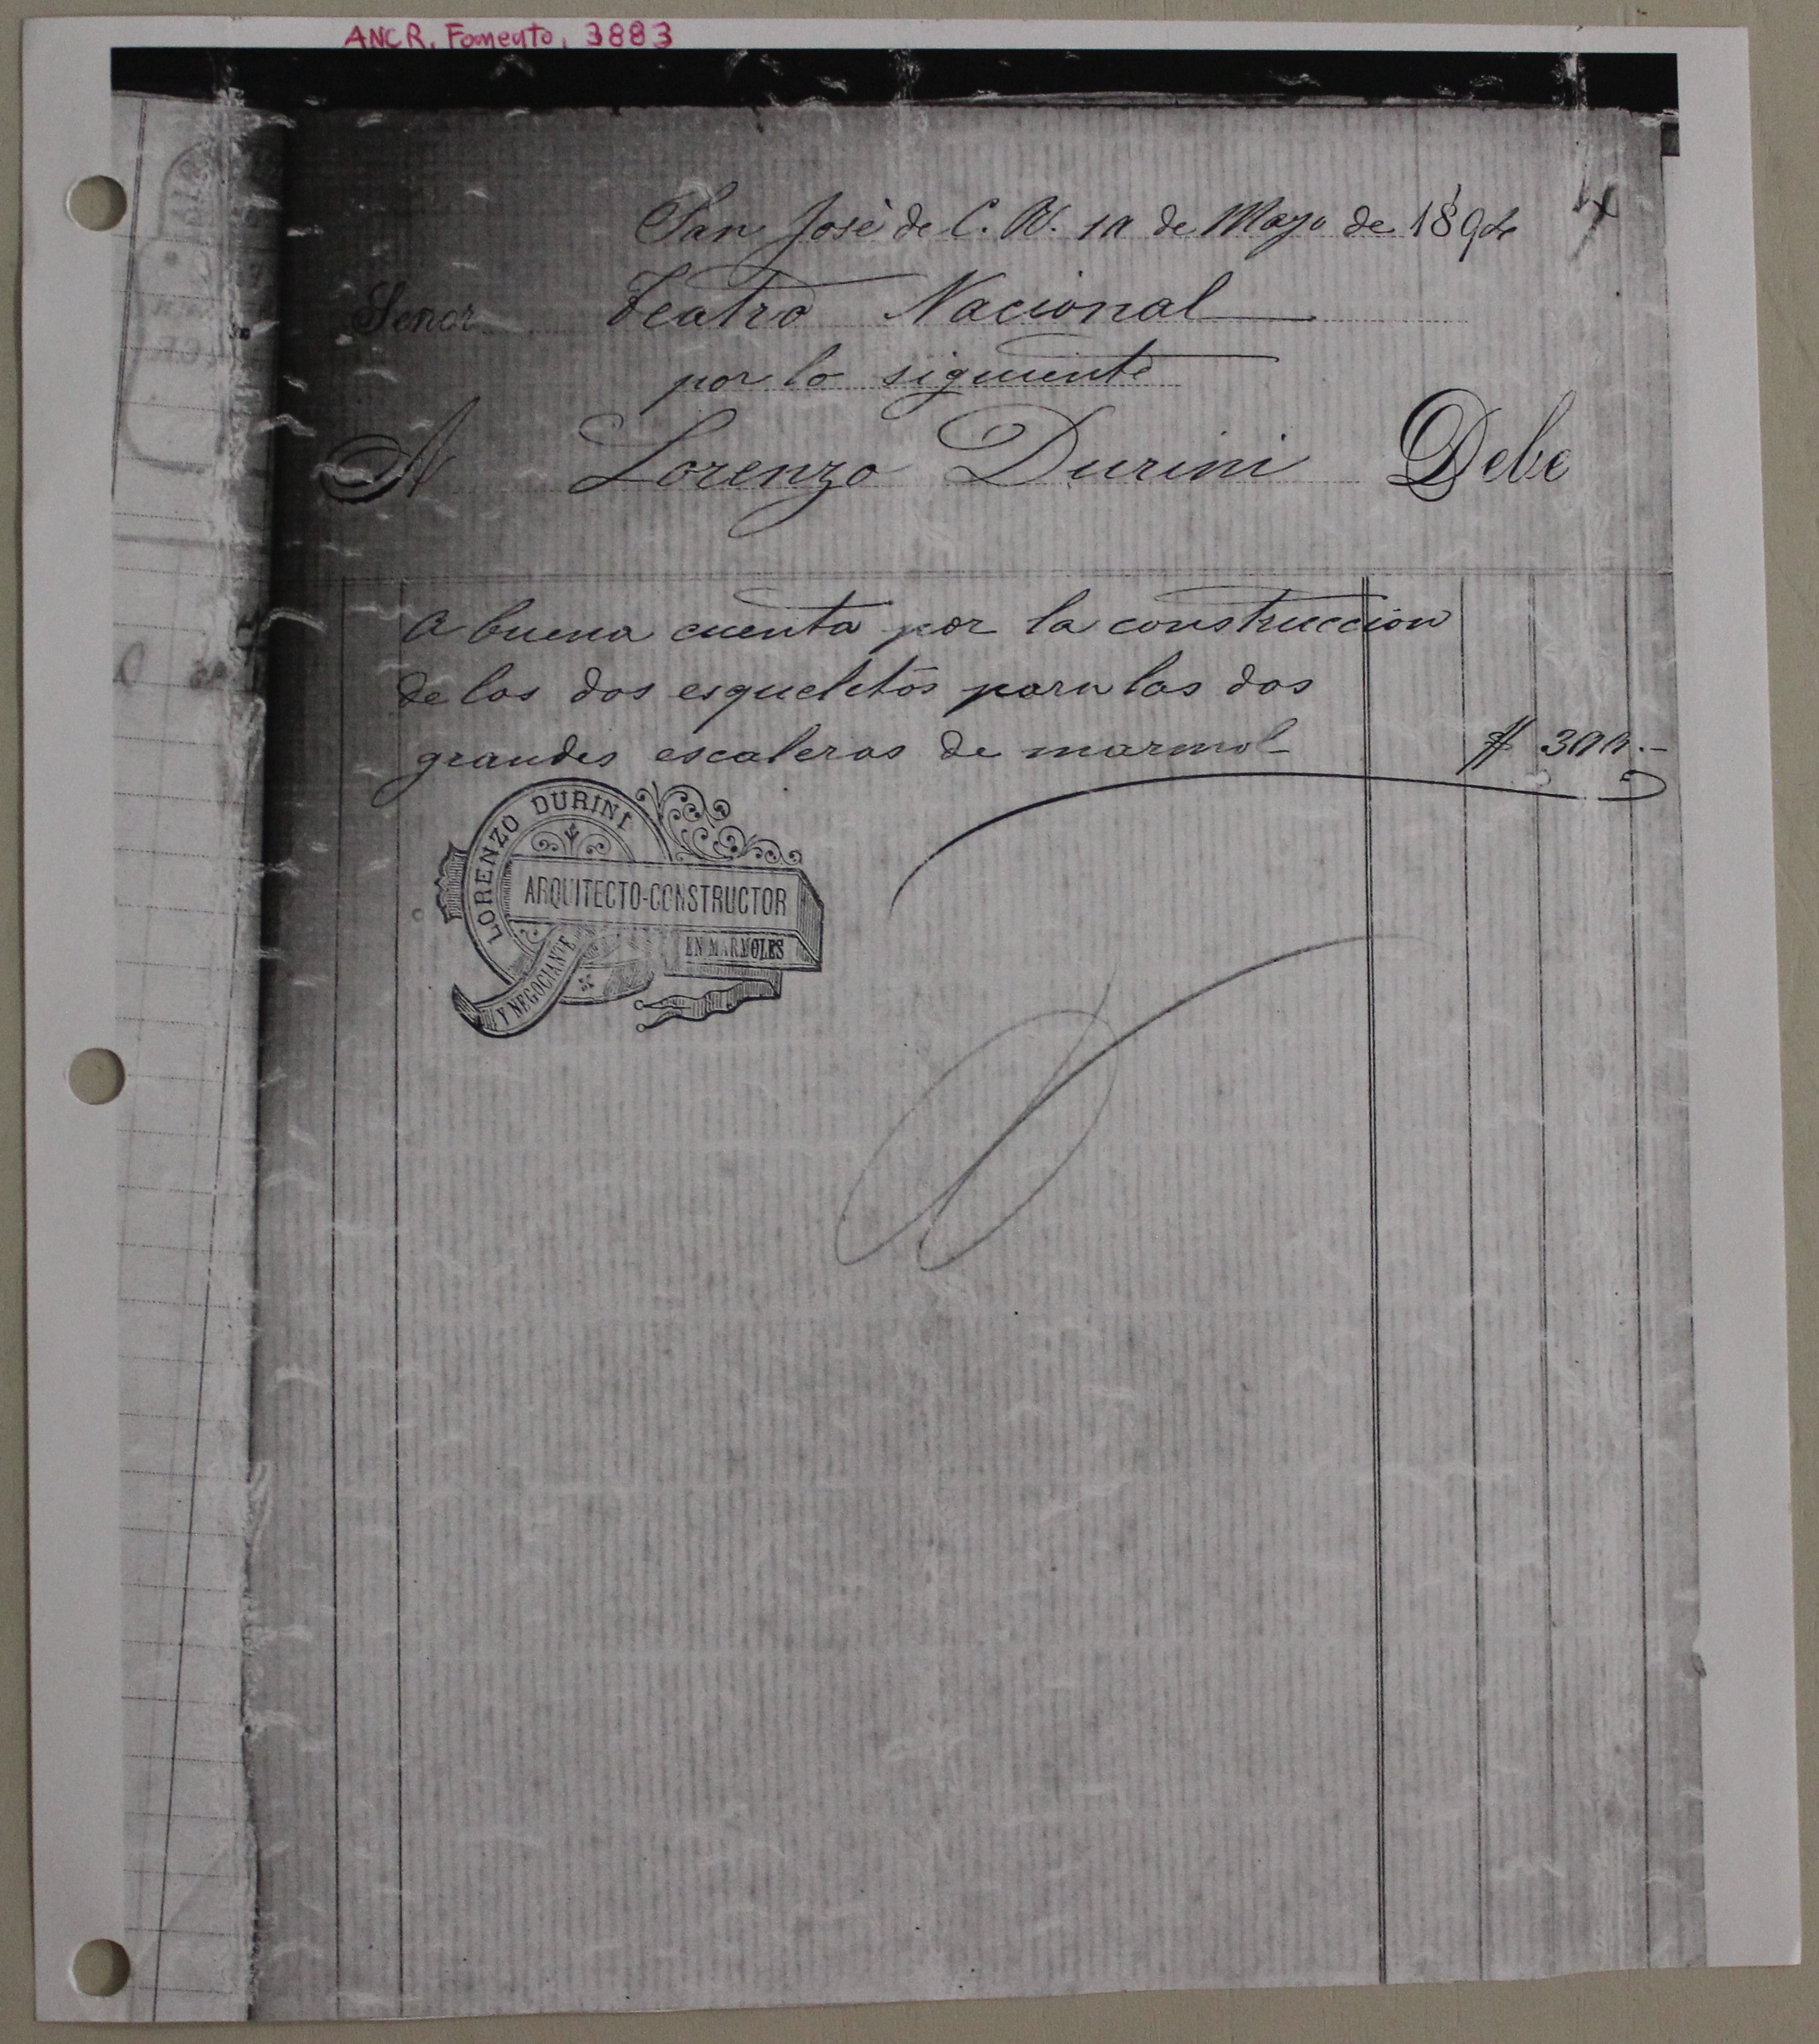 ANCR, Fomento, 3883
San José de C. R. 10 de Mayo de 1894
Señor Teatro Nacional
por lo siguiente
A Lorenzo Durini Debe
A buena cuenta por la construccion
de los dos esqueletos para las dos
grandes escaleras de marmol $ 300.-
LORENZO DURINI
ARQUITECTO-CONSTRUCTOR
Y NEGOCIANTE EN MARMOLES